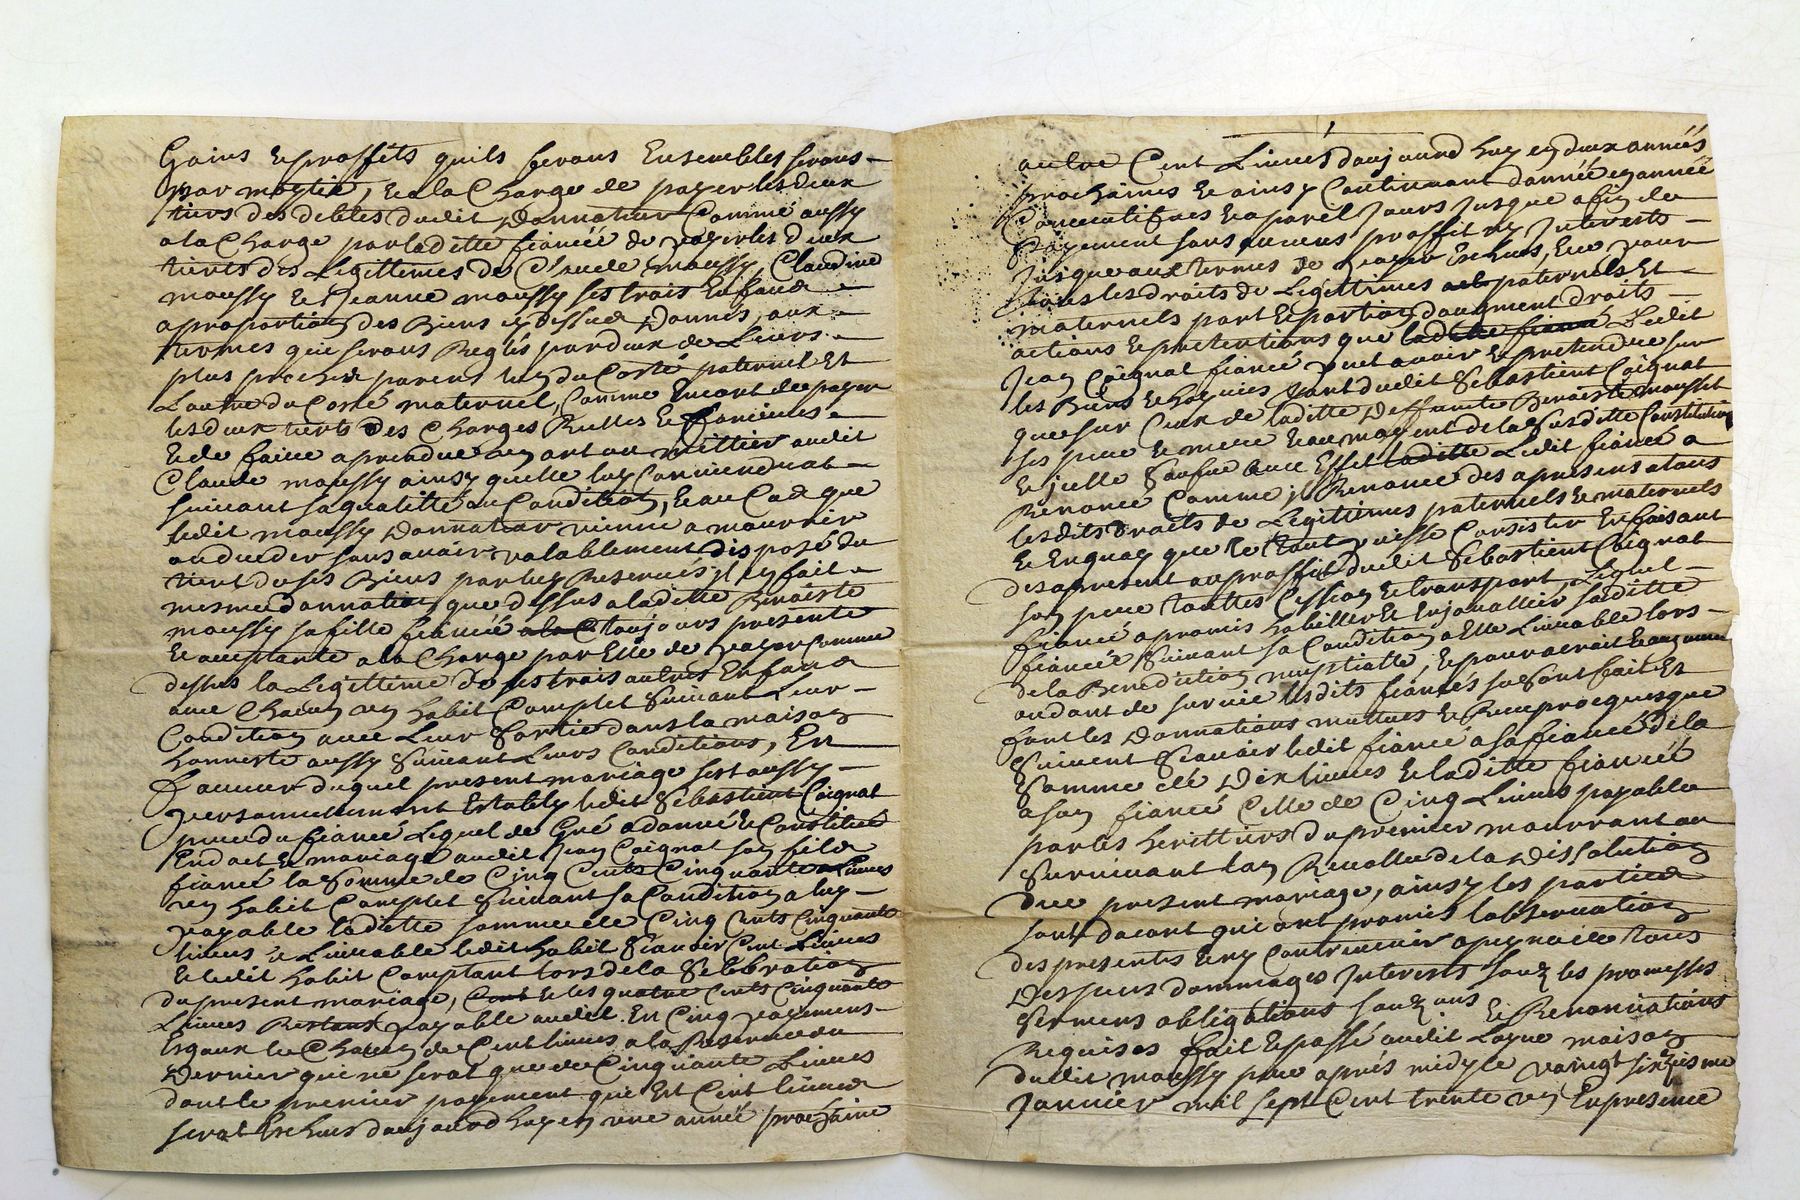 Gains et proffits quils ferons Ensembles serons
par moytié, et a la Charge de payer les deux
tiers des debtes dudit Donnateur Comme aussy
a la Charge par ladette fiancéé de payer les deux
tierts des Legittimes de Claude moussy, Claudine
moussy et Jeanne moussy ses trois Enfans
a proportion des Biens cy dessus Donnés, aux
termes que serons Reglés par deux de Leurs
plus proches parens lun du Costé paternel Et
Lautre du Costé maternel, Comme Encore de payer
les deux tierts des Charges Rielles et foncieres
et de faire aprendre un art ou mettier audit
Claude moussy ainsy quelle luy Conviendrat
suivant sa qualitté ou Condition, et au Cas que
ledit moussy Donnateur vienne a mourrir
ou deceder sans avoir valablement disposé du
tiert de ses Biens par luy Reservés il en fait
mesme donnation que dessus a ladette Benoiste
moussy sa fille fiancéé a la C toujours presente
et acceptante a la Charge par Elle de payer Comme
dessus la Legittime de ses trois autres Enfans
avec Chacun un habit Complet Suivant Leur
Condition avec Leur Sortie dans la maison
honneste aussy Suivant Leurs Conditions, En
faveur duquel present mariage sest aussy
personnellement Estably ledit Sebastient Coignat
pere du fiancé Lequel de Gré a donné et Constitué
En dot et mariage audit Jean Coignat son fils
fiancé la Somme de Cinq Cents Cinquante Livres
un habit Complet Suivant sa Condition a luy
payable ladette somme de Cinq Cents Cinquante
livres et Livrable ledit habit Scavoir Cent Livres
et ledit habit Comptant lors de la Selebration
du present mariage, Cent et les quatre Cents Cinquante
Livres Restans payable audit En Cinq payemens
Esgaux de Chacun de Cent livres a la Reserve du
Dernier qui ne serat que de Cinquante Livres
dont le premier payement qui Est Cent livres
serat Escheus daujourd huy en une année prochaine
autre Cent Livres daujourd huy en deux annéés
prochaines et ainsy Continuant dannéé en annéé
Concecutifves et a pareil Jours Jusque a fin de
Payement sans aucuns proffit ny Interests
Jusque aux termes de payer Escheus, Ece pour
tous les droits de Legitimes paternels Et
maternels part et portion daugment droits
actions et pretentions que ladette fiancé Ledit
Jean Coignat fiancé peut avoir et pretendre sur
les Biens et hoyries tant dudit Sebastient Coignat
que sur Ceux de ladette Deffunte Benoiste mousset
ses pere et mere et au moyent de la Susdette Constitution
et jcelle Saufve avec Effet ladette Ledit fiancé a
Renoncé Comme jl Renonce des apresens a tous
lesdits droits de Legitimes paternels et maternels
et En quoy que le tout puisse Consister En faisant
des apresent au proffit dudit Sebastient Coignat
son pere touttes Cession et transport, Lequel
fiancé a promis habiller et Enjoualler saditte
fiancéé Suivant sa Condition a Elle Livrable lors
de la Benediction nuptialle, et pour
ou dont de survie lesdits fiancés se Sont fait Et
font les Donnations mutuues et Reciprocques que
Suivent Scavoir ledit fiancé a sa fiancéé de la
Somme de Dix livres et ladette fiancéé
a son fiancé Celle de Cinq Livres payables
par les herittiers du premier mourrant au
Survivant lan Revollu de la Dissolution
dud present mariage, ainsy les parties
sont dacort qui ont promis lobservation
des presentes et ny Contrevenir a peyne de tous
Despens dommages Interests soub les promesses
Sermens obligations soub. ans et Renonciations
Requises fait et passé audit Layne maison
dudit moussy pere aprés midy le vaingt sixiesme
Janvier mil sept Cent trente un En presence